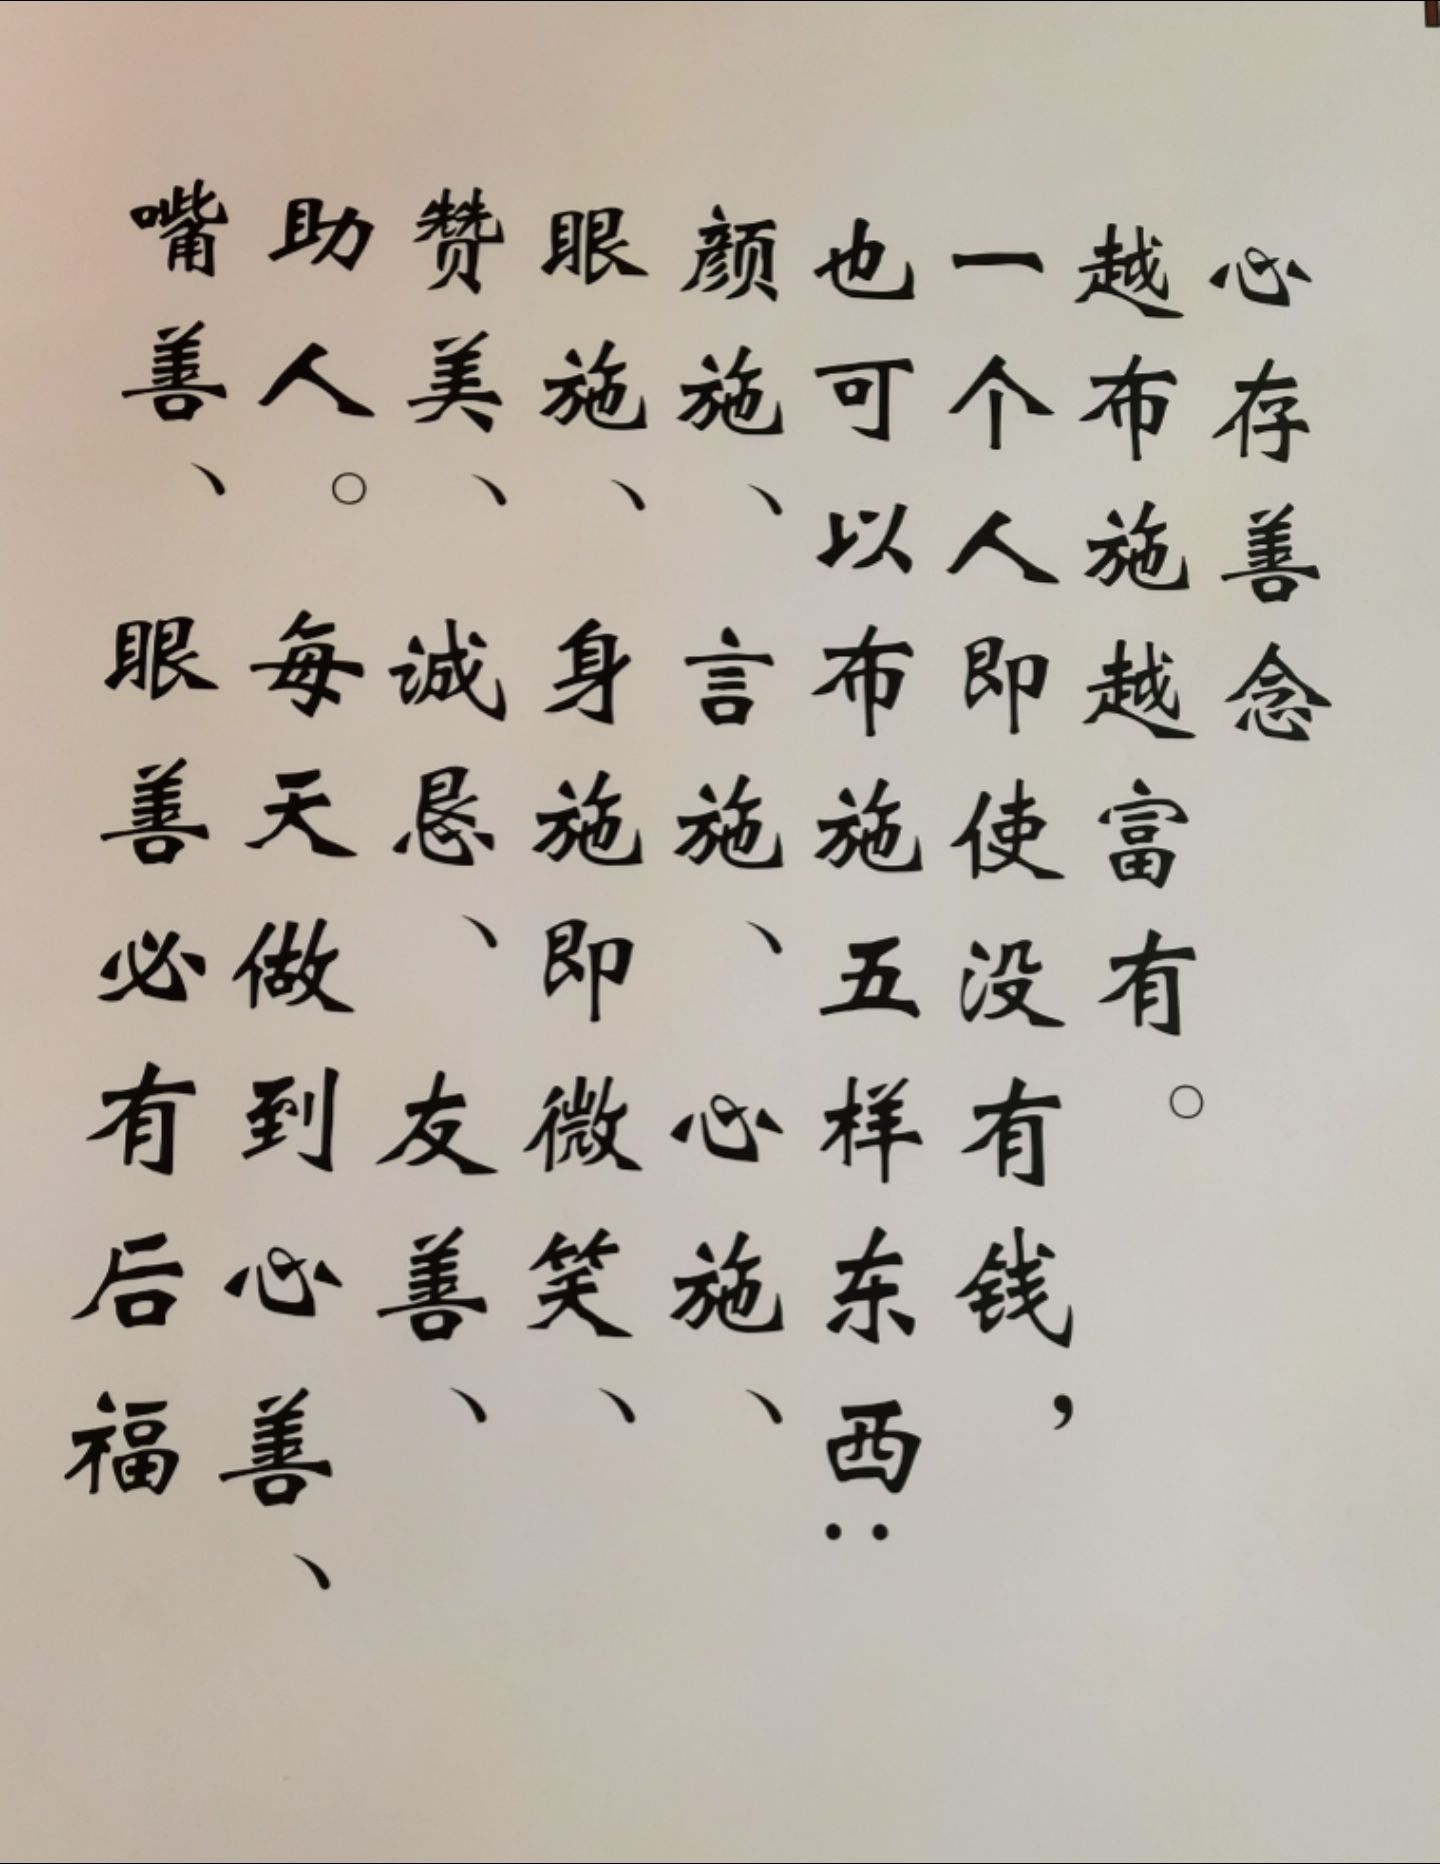 心存善念
越布施越富有。
一个人即使没有钱，
也可以布施五样东西：
颜施、言施、心施、
眼施、身施即微笑、
赞美、诚恳、友善、
助人。每天做到心善、
嘴善、眼善必有后福